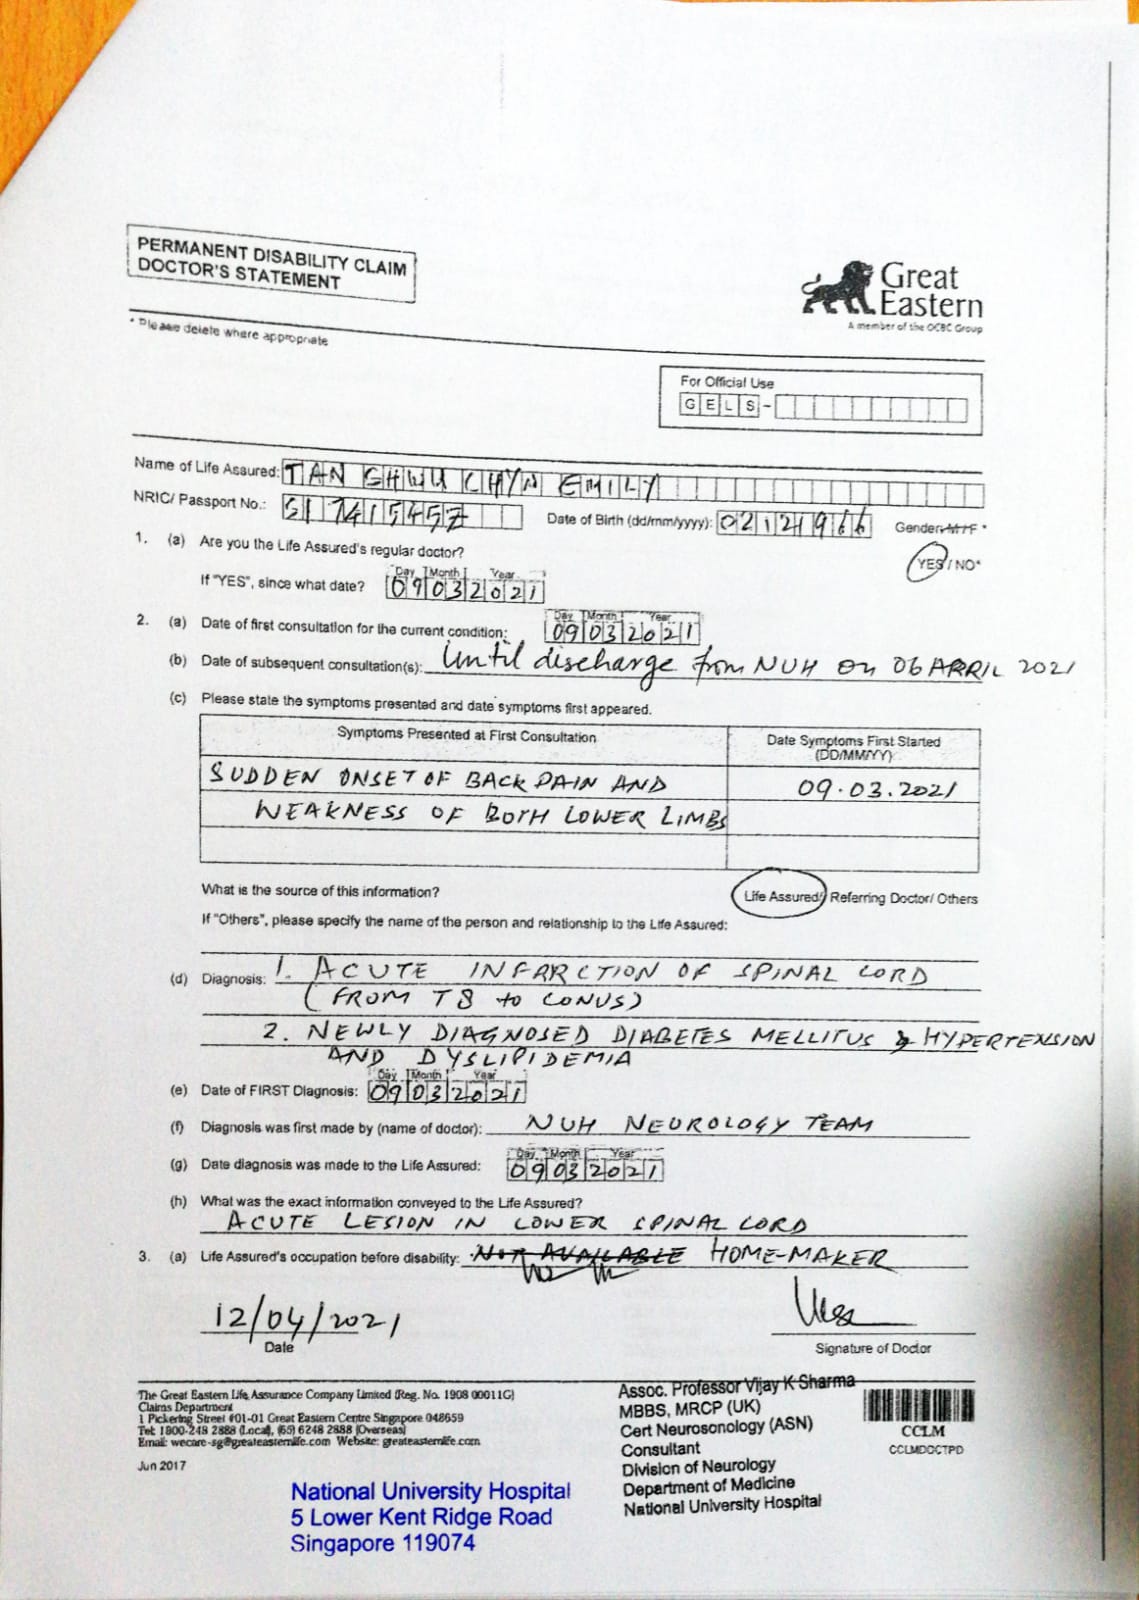 PERMANENT DISABILITY CLAIM
DOCTOR'S STATEMENT
Great
Eastern
A member of the OCBC Group
* Please delete where appropriate
For Official Use
GELS-
Name of Life Assured: TAN SHWU CHYN EMILY
NRIC/ Passport No.: Date of Birth (dd/mm/yyyy): 02121966 Gender: M/F *
1. (a) Are you the Life Assured's regular doctor? YES / NO*
Day Month Year
If "YES", since what date? 09032021
Day Month Year
2. (a) Date of first consultation for the current condition: 09032021
(b) Date of subsequent consultation(s): Until discharge from NUH on 06 APRIL 2021
(c) Please state the symptoms presented and date symptoms first appeared.
Symptoms Presented at First Consultation Date Symptoms First Started
(DD/MM/YY)
SUDDEN ONSET OF BACK PAIN AND 09.03.2021
WEAKNESS OF BOTH LOWER LIMBS
What is the source of this information? Life Assured/ Referring Doctor/ Others
If "Others", please specify the name of the person and relationship to the Life Assured:
(d) Diagnosis: 1. ACUTE INFARCTION OF SPINAL CORD
(FROM T8 to CONUS)
2. NEWLY DIAGNOSED DIABETES MELLITUS & HYPERTENSION
AND DYSLIPIDEMIA
Day Month Year
(e) Date of FIRST Diagnosis: 09032021
(f) Diagnosis was first made by (name of doctor): NUH NEUROLOGY TEAM
Day Month Year
(g) Date diagnosis was made to the Life Assured: 09032021
(h) What was the exact information conveyed to the Life Assured?
ACUTE LESION IN LOWER SPINAL CORD
3. (a) Life Assured's occupation before disability: NOT AVAILABLE HOME-MAKER
12/04/2021
Date Signature of Doctor
The Great Eastern Life Assurance Company Limited (Reg. No. 1908 00011G)
Claims Department
1 Pickering Street #01-01 Great Eastern Centre Singapore 048659
Tel: 1800-248 2888 (Local), (65) 6248 2888 (Overseas)
Email: wecare-sg@greateasternlife.com Website: greateasternlife.com
Jun 2017
Assoc. Professor Vijay K Sharma
MBBS, MRCP (UK)
Cert Neurosonology (ASN)
Consultant
Division of Neurology
Department of Medicine
National University Hospital
CCLM
CCLMDOCTPD
National University Hospital
5 Lower Kent Ridge Road
Singapore 119074